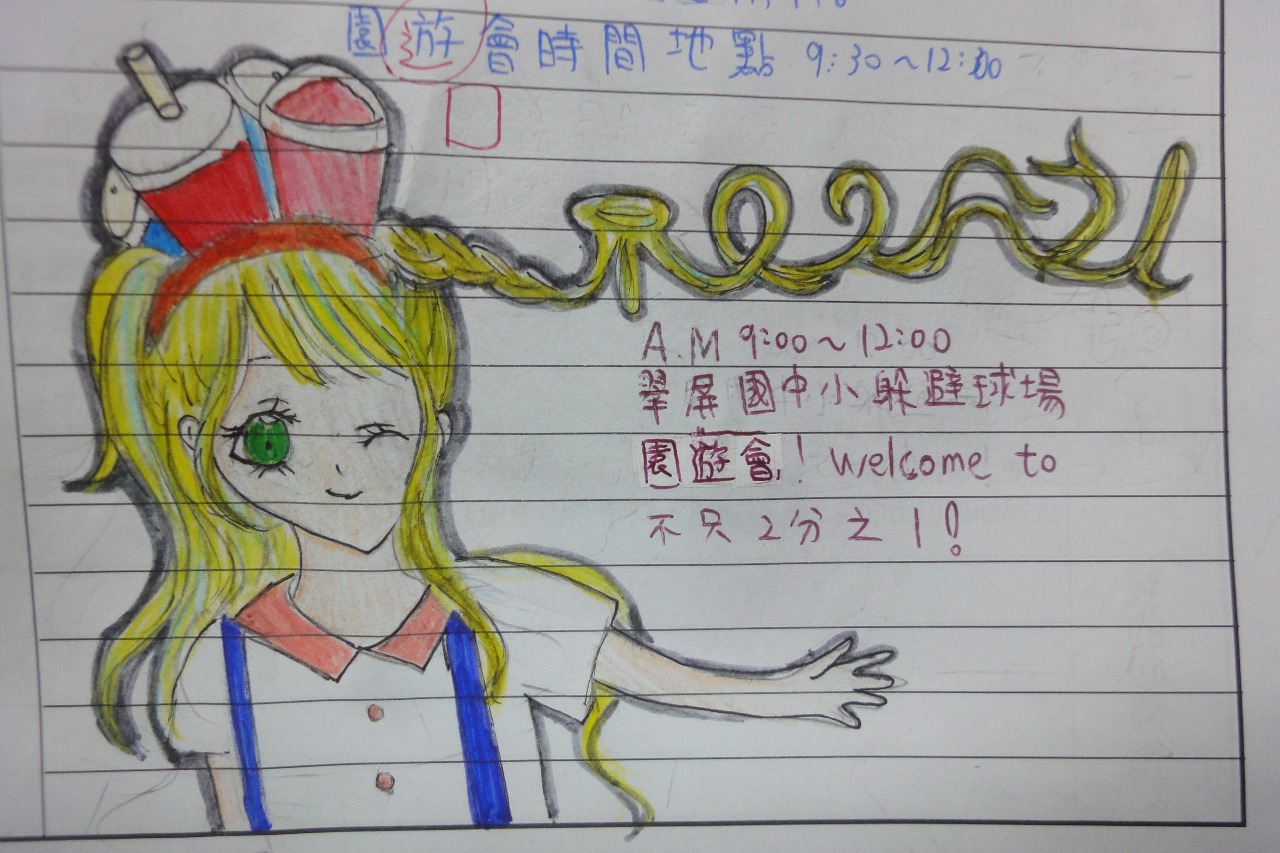 園遊會時間地點 9:30~12:00
A.M 9:00~12:00
翠屏國中小躲避球場
園遊會! welcome to
不只2分之1!